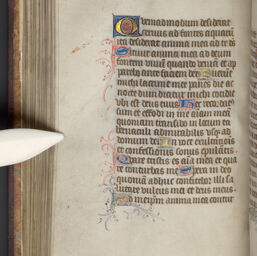 Quemadmodum desiderat
cervus ad fontes aquarum
ita desiderat anima mea ad te de
Sitivit anima mea ad deum
fontem vivum quando veniam et ap
parebo ante faciem dei Fuerunt
michi lacrime mee panes die ac
nocte dum dicitur michi cotidie
ubi est deus tuus Hec recordat
sum et effudi in me aiam mea
quoniam transibo in locum ta
bernaculi admirabilis usq ad
domum dei In voce exultacionis
et confessionis sonus epulantis
Quare tristis es aia mea et qua
re conturbas me Spera in deo
quoniam adhuc confitebor illi sa
lutare vultus mei et deus meus
Ad meipsum anima mea contur